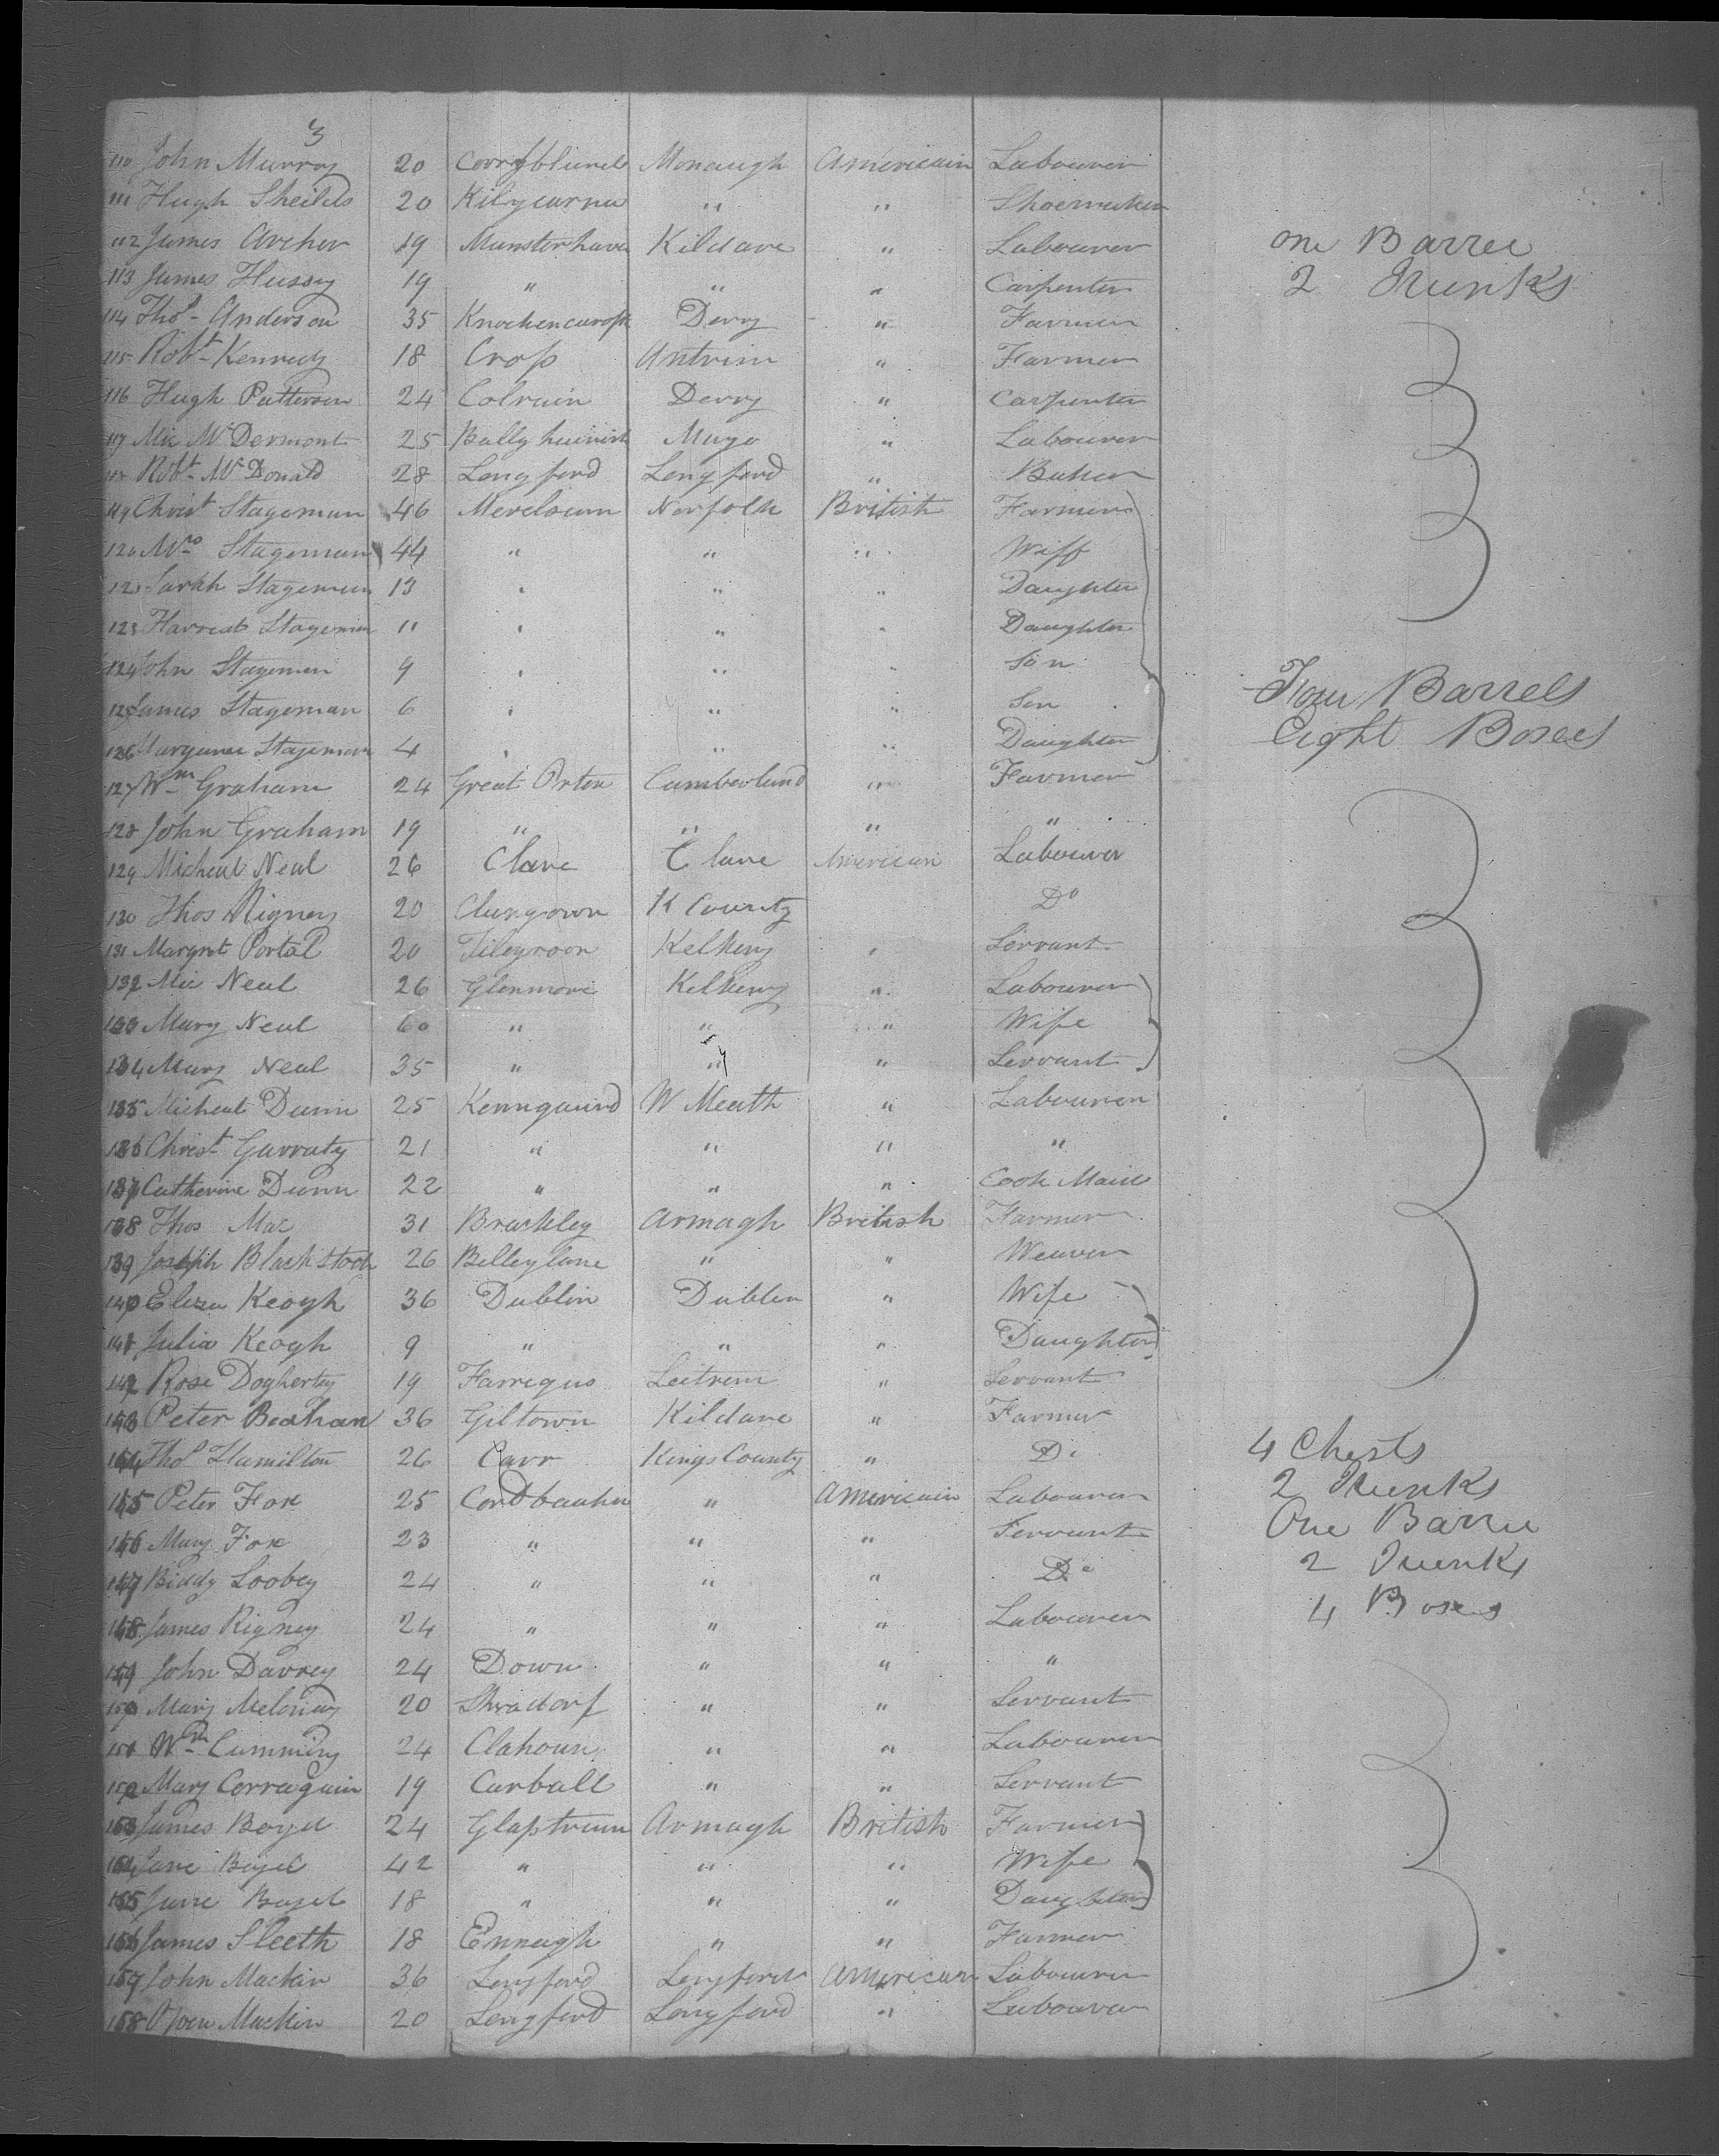 3
110 John Murray 20 Corryblund Monaugh Americain Labourer
111 Hugh Sheilds 20 Kilycurnu " " Shoemaker
112 James Archer 19 Munsterhave Kildare " Labourer one Barrel
113 James Hussey 19 " " " Carpenter 2 Trunks
114 Thos Anderson 35 Derry " Farmer
115 Robt Kennedy 18 Cross Antrim " Farmer
116 Hugh Patterson 24 Colrain Derry " Carpenter
117 Mic McDermont 25 Mayo " Labourer
118 Robt McDonald 28 Longford Longford " Baker
119 Christ Stageman 46 Norfolk British Farmer
120 Mrs Stageman 44 " " " Wiff
121 Sarah Stageman 13 " " " Daughter
123 Harreat Stageman 11 " " " Daughter
124 John Stageman 9 " " " Son
125 James Stageman 6 " " " Son Four Barrels
126 Maryanne Stageman 4 " " " Daughter Eight Boxes
127 Wm Graham 24 Great Orton Cumberland " Farmer
128 John Graham 19 " " " "
129 Micheal Neal 26 Clare Clare American Labourer
130 Thos Rigney 20 Clungown K County Do
131 Margret Portal 20 Kelkeny " Servant
132 Mic Neal 26 Glenmore Kelkeny " Labourer
133 Mary Neal 60 " " " Wife
134 Mary Neal 35 " " " Servant
135 Micheal Dunn 25 Kenngaurd W Meath " Labourer
136 Christ Garraty 21 " " " "
137 Catherine Dunn 22 " " " Cook Maid
138 Thos Mac 31 Brackley Armagh British Farmer
139 Joseph Blackstock 26 Belleylane " " Weaver
140 Eliza Keogh 36 Dublin Dublin " Wife
141 Julia Keogh 9 " " " Daughter
142 Rose Dogherty 19 Farregus Leitrem " Servant
143 Peter Beahan 36 Giltown Kildare " Farmer
144 Thos Hamilton 26 Carr Kings County " Do 4 Chests
145 Peter Fox 25 " Americain Labourer 2 Trunks
146 Mary Fox 23 " " " Servant One Barrel
147 Biddy Loobey 24 " " " Do 2 Trunks
148 James Rigney 24 " " " Labourer 4 Boxes
149 John Davrey 24 Down " " "
150 Mary Melonay 20 " " Servant
151 Wm Cumming 24 Clahoun " " Labourer
152 Mary Corraguin 19 Carball " " Servant
153 James Boyd 24 Armagh British Farmer
154 Jane Boyd 42 " " " Wife
155 Jane Boyd 18 " " " Daughter
156 James Sleeth 18 Ennagh " " Farmer
157 John Mackin 36 Longford Longford American Labourer
158 Mackin 20 Longford Longford " Labourer